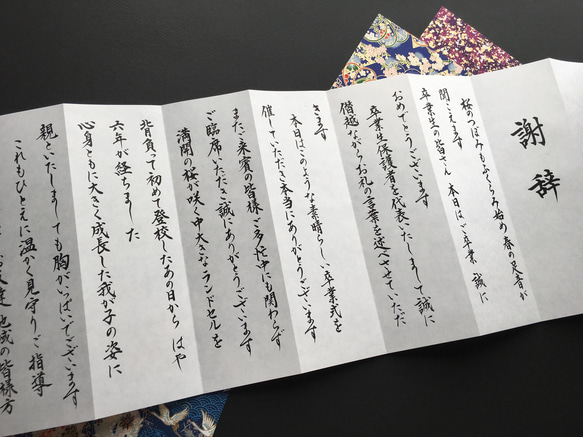 謝辞
桜のつぼみもふくらみ始め春の足音が
聞こえます
卒業生の皆さん 本日はご卒業 誠に
おめでとうございます
卒業生保護者を代表いたしまして誠に
僭越ながらお礼の言葉を述べさせていただ
きます
本日はこのような素晴らしい卒業式を
催していただき本当にありがとうございます
またご来賓の皆様ご多忙中にも関わらず
ご臨席いただき誠にありがとうございます
満開の桜が咲く中大きなランドセルを
背負って初めて登校したあの日から はや
六年が経ちました
心身ともに大きく成長した我が子の姿に
親といたしましても胸がいっぱいでございます
これもひとえに温かく見守りご指導
地域の皆様方